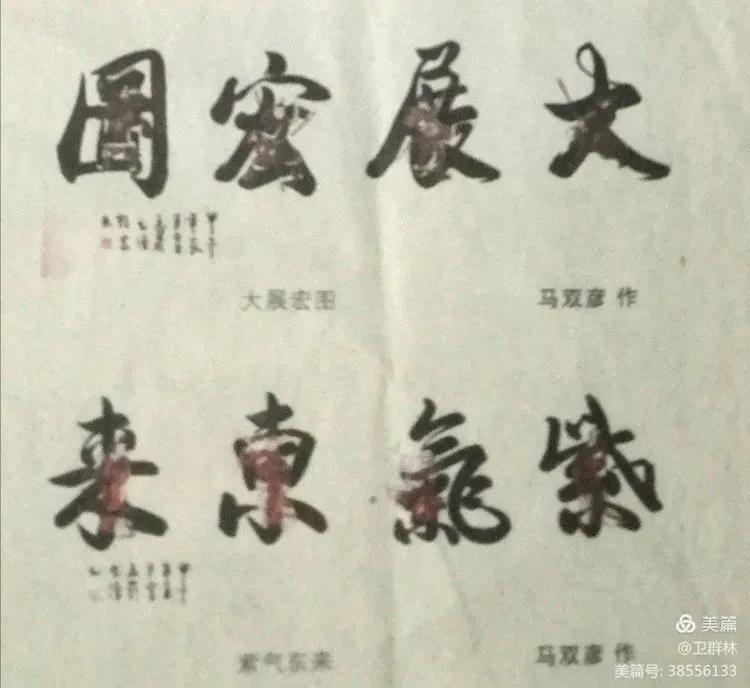 大展宏圖
大展宏图
马双彦 作
紫氣東来
紫气东来
马双彦 作
美篇
@卫群林
美篇号: 38556133